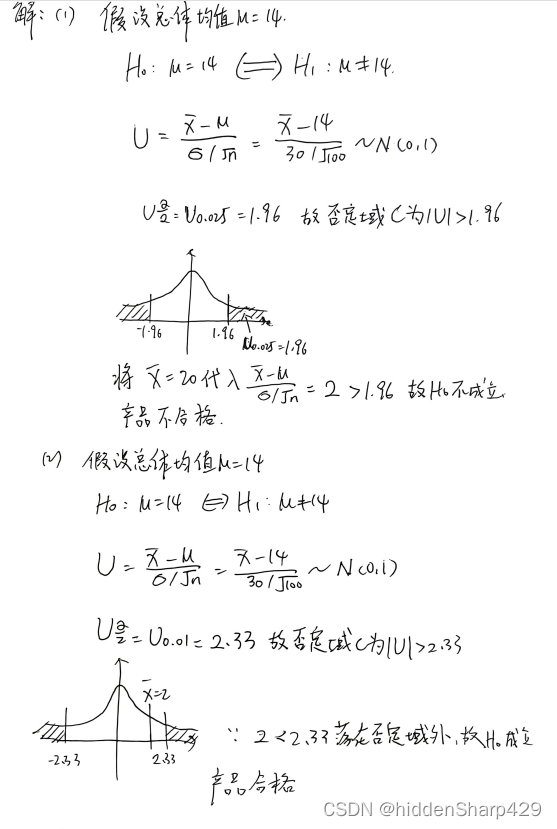 解: (1) 假设总体均值μ=14.
H₀: μ=14 ⟺ H₁: μ≠14.
U = (x̄-μ)/(σ/√n) = (x̄-14)/(30/√100) ~ N(0,1)
U α/2 = U0.025 = 1.96 故否定域C为|U|>1.96
-1.96 1.96 U0.025=1.96
将 x̄=20代入 (x̄-μ)/(σ/√n) = 2 >1.96 故H₀不成立
产品不合格.
(2) 假设总体均值μ=14
H₀: μ=14 ⟺ H₁: μ≠14
U = (x̄-μ)/(σ/√n) = (x̄-14)/(30/√100) ~ N(0,1)
U α/2 = U0.01 = 2.33 故否定域C为|U|>2.33
x̄=2
-2.33 2.33
∵ 2<2.33 落在否定域外,故H₀成立
产品合格
CSDN @hiddenSharp429